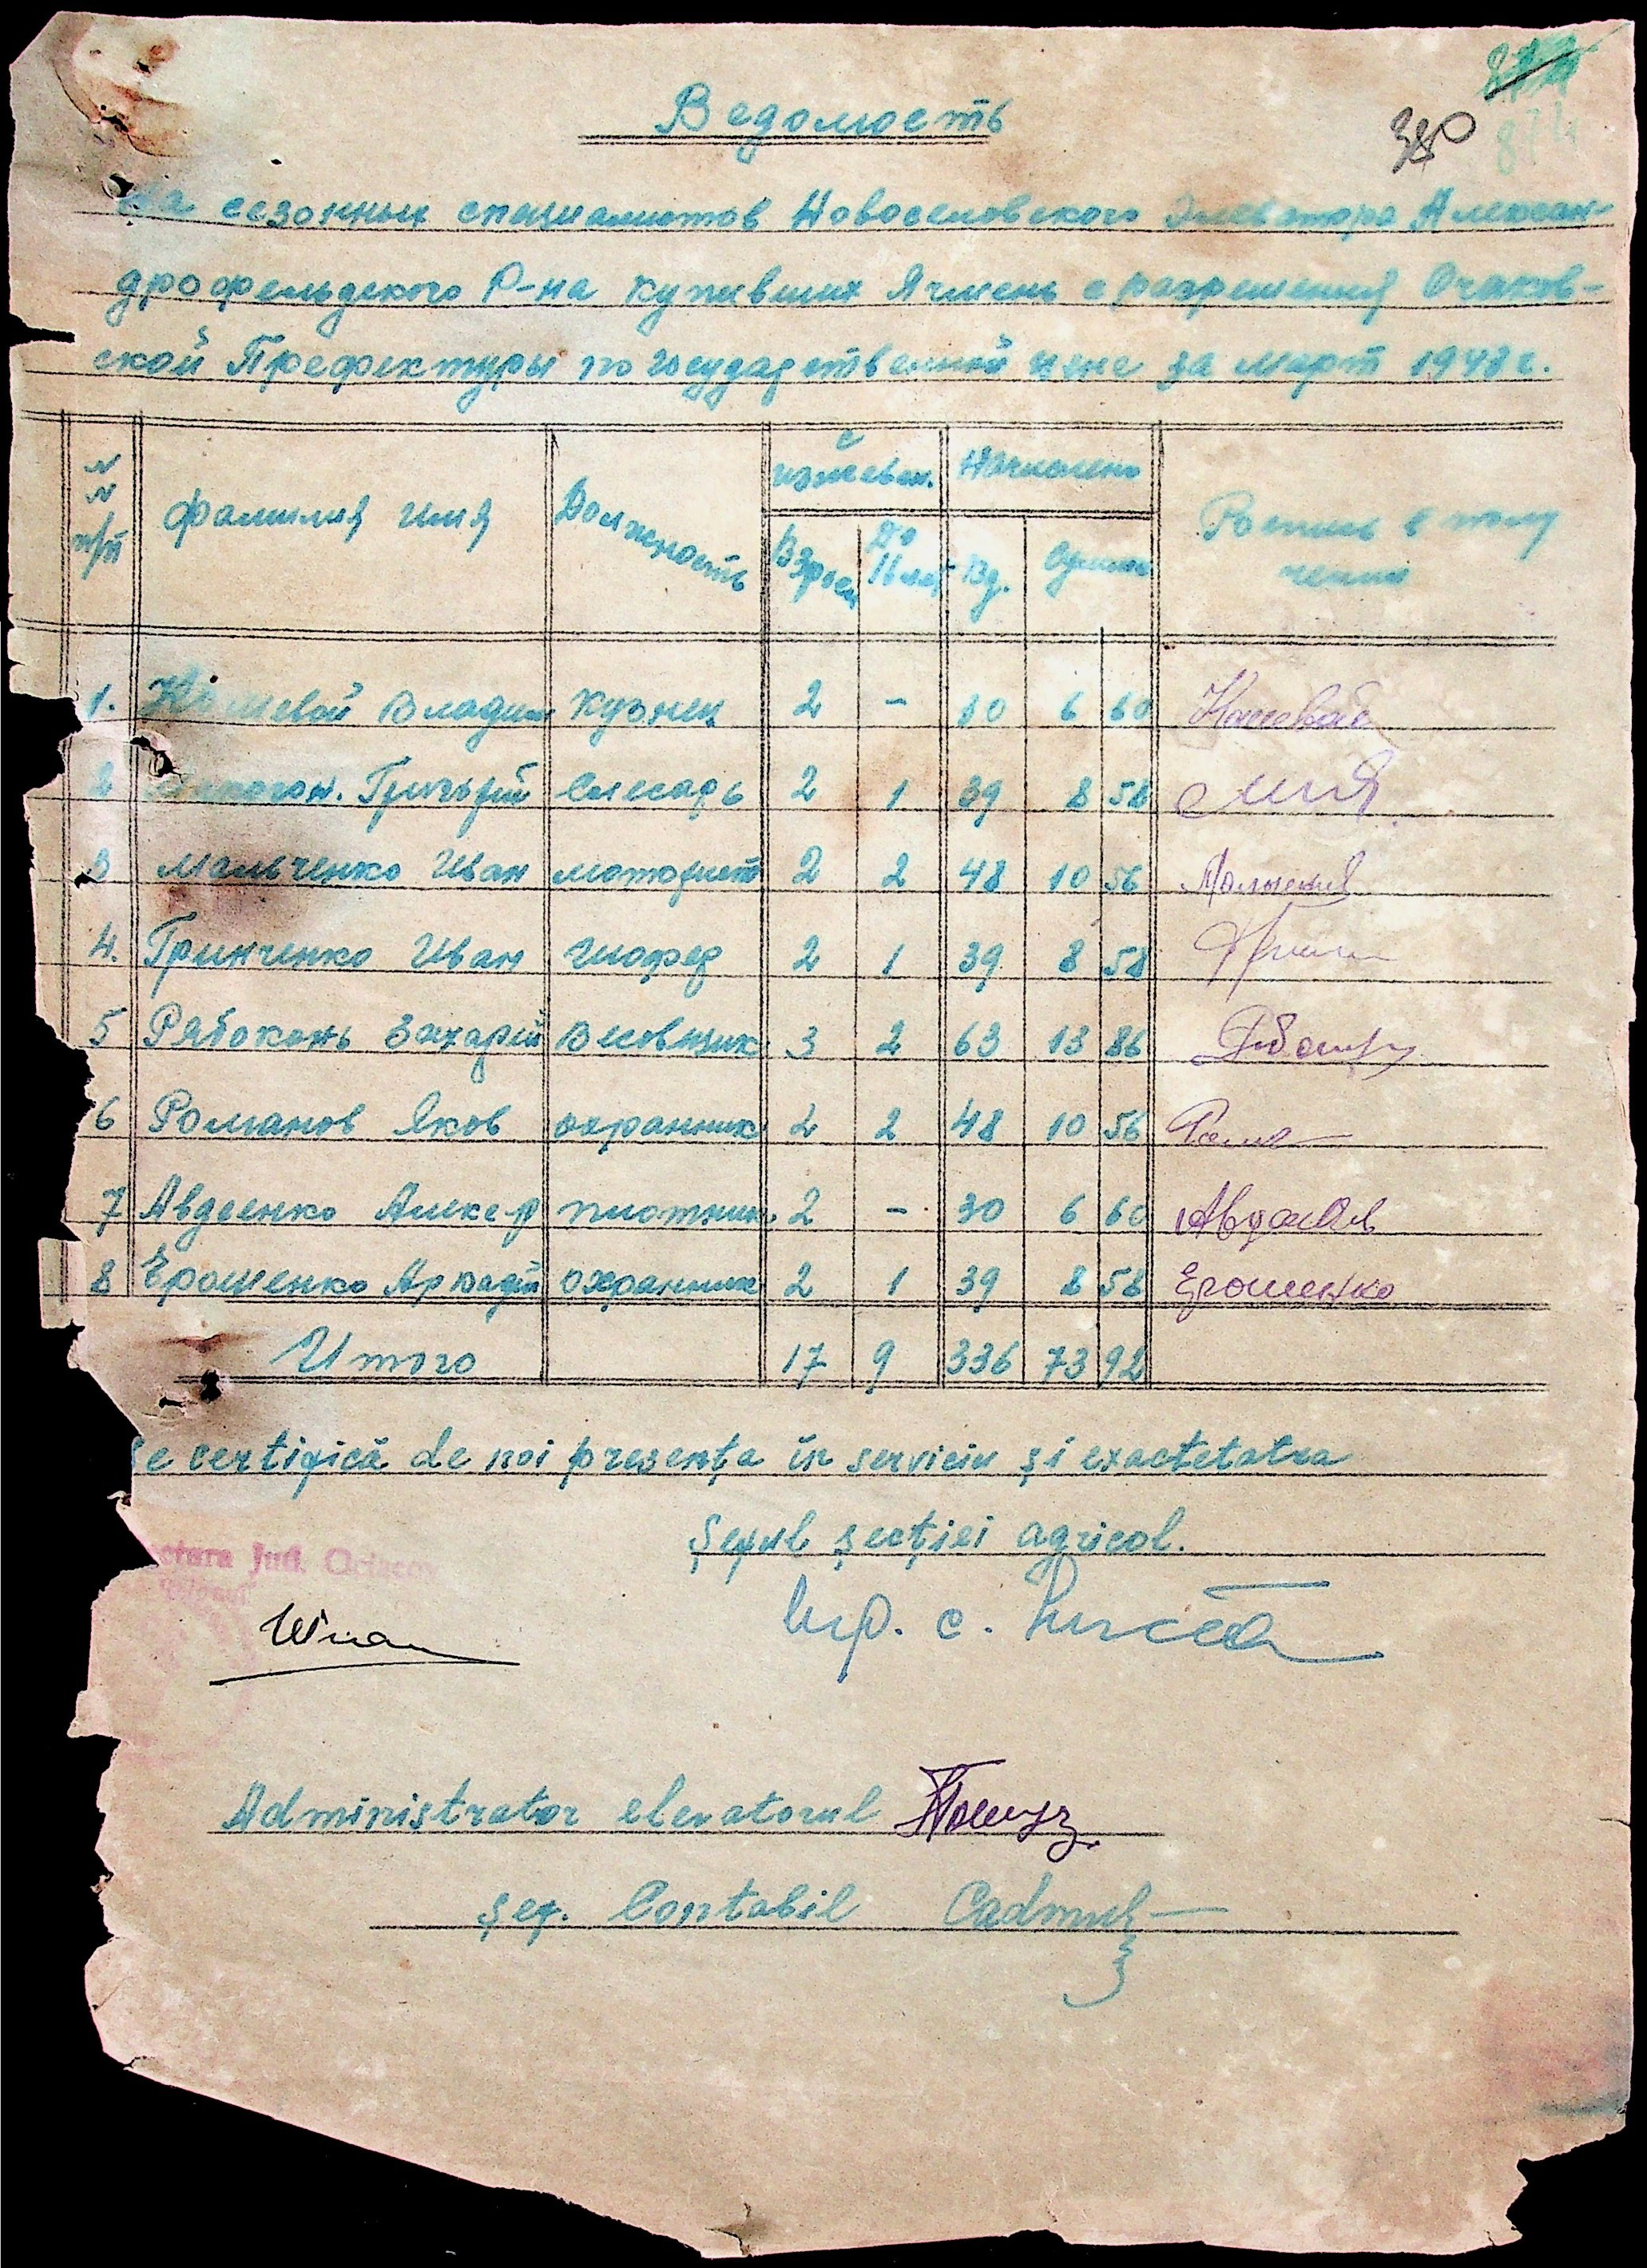 Ведомость
380
На сезонных специалистов Новоселовского Элеватора Алексан-
дрофельдского Р-на купивших Ячмень с разрешения Очаков-
ской Префектуры по государственной цене за март 1943 г.
N N п/п Фамилия имя Должность с иждевен. Начислено Роспись в полу
Взросл До 16 лет Кг. Сумма чении
1. Кошевой Владим Кузнец 2 - 30 6 60 Кошевой
2 Григорий Слесарь 2 1 39 8 58
3 Мальченко Иван моторист 2 2 48 10 56
4. Гринченко Иван Шофер 2 1 39 8 58
5 Рябоконь Захарий Весовщик 3 2 63 13 86
6 Романов Яков охранник 2 2 48 10 56
7 Авдеенко Алек-р плотник 2 - 30 6 60
8 Ерошенко Аркадий охранник 2 1 39 8 58 Ерошенко
Итого 17 9 336 73 92
Se certifică de noi prezența în serviciu și exactetatea
Șeful secției agricol.
ectura Jud. Ociacov
Administrator elevatorul
Șef. Contabil